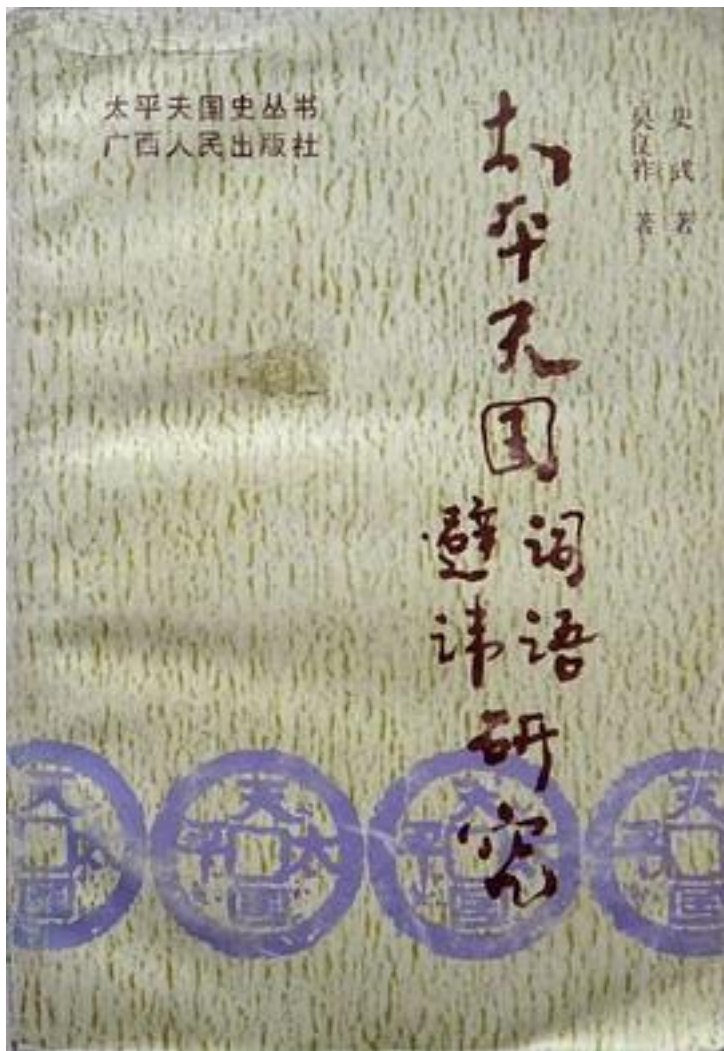 太平天国史丛书
广西人民出版社
史式 著
吴良祚 著
太平天国
词语
避讳
研究
天国
太平天国
太平天国
太平天国